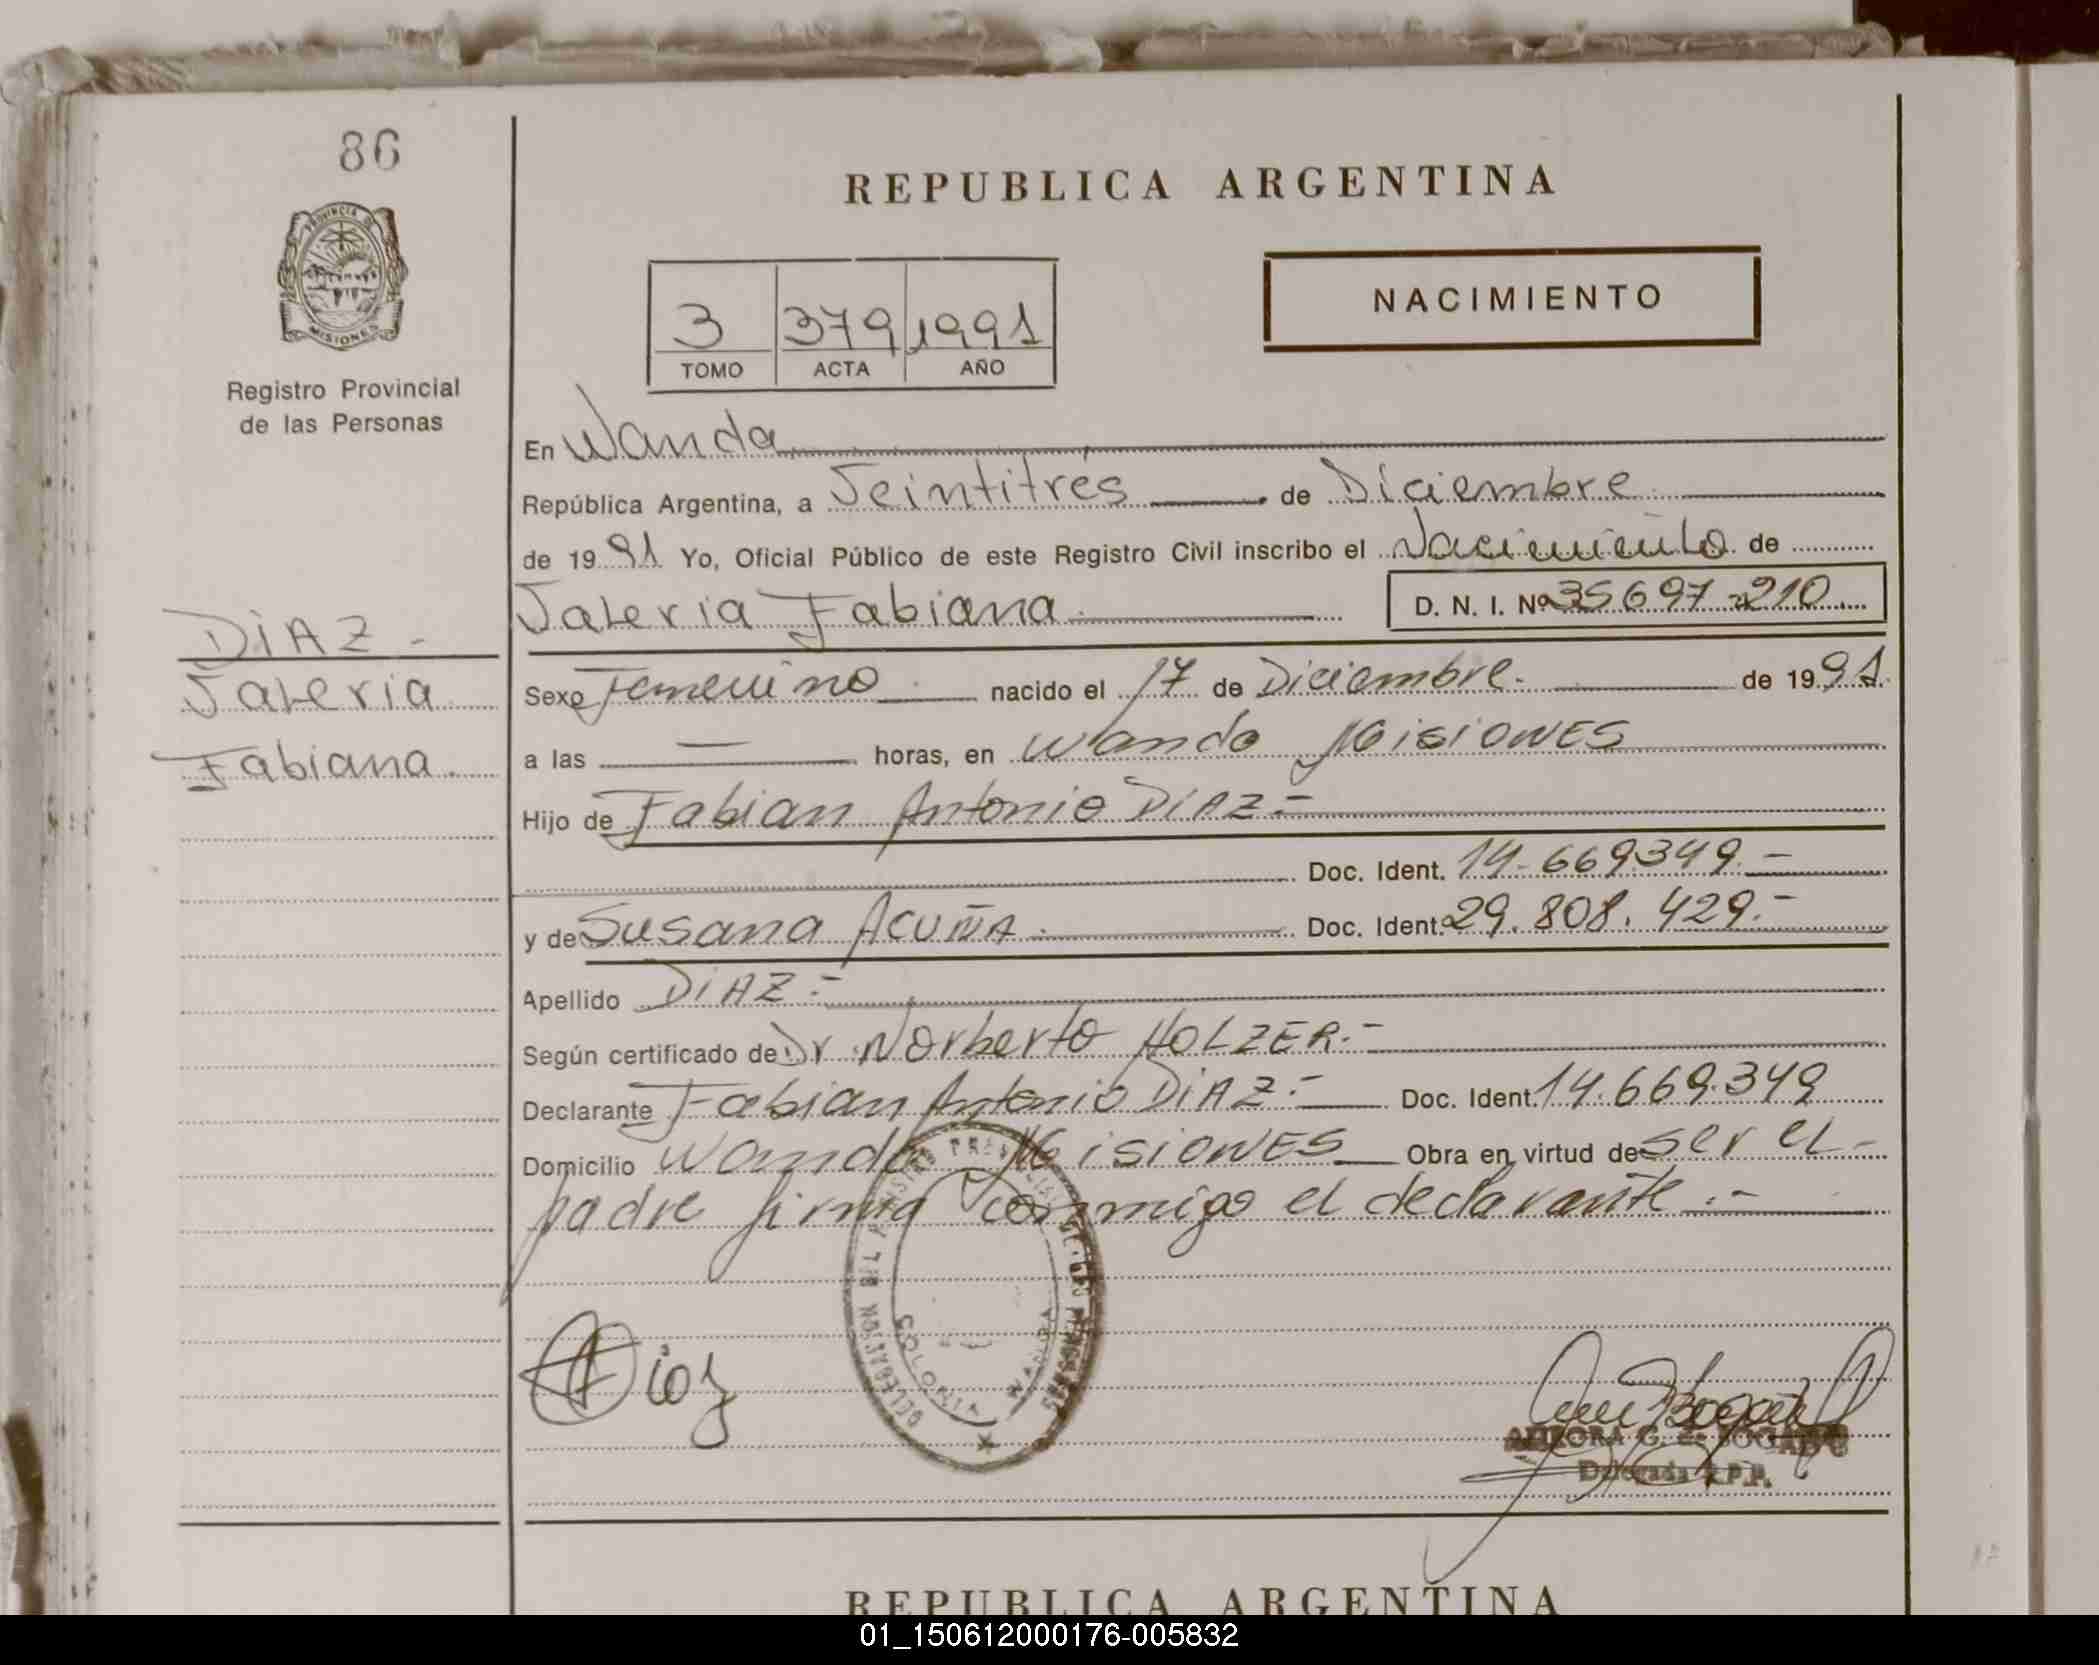 86
PROVINCIA DE
MISIONES
Registro Provincial
de las Personas
REPUBLICA ARGENTINA
NACIMIENTO
3 379 1991
TOMO ACTA AÑO
En Wanda
República Argentina, a Veintitrés de Diciembre
de 1991 Yo, Oficial Público de este Registro Civil inscribo el Nacimiento de
Valeria Fabiana D. N. I. Nº 35697210
DIAZ -
Valeria
Fabiana
Sexo Femenino nacido el 17 de Diciembre de 1991
a las — horas, en Wanda Misiones
Hijo de Fabian Antonio DIAZ.-
Doc. Ident. 14.669.349.-
y de Susana ACUÑA Doc. Ident. 29.808.429.-
Apellido DIAZ.-
Según certificado de Dr Norberto HOLZER.-
Declarante Fabian Antonio DIAZ.- Doc. Ident. 14.669.349
Domicilio Wanda Misiones Obra en virtud de ser el-
padre firma conmigo el declarante.-
Diaz
COLONIA WANDA
AURORA G. de BOGADO
Delegada R.P.P.
REPUBLICA ARGENTINA
01_150612000176-005832